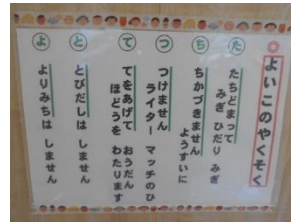 よいこのやくそく
た
たちどまって
みぎ ひだり みぎ
ち
ちかづきません
ようすいに
つ
つけません
ライター マッチのひ
て
てをあげて おうだん
ほどうを わたります
と
とびだしは しません
よ
よりみちは しません